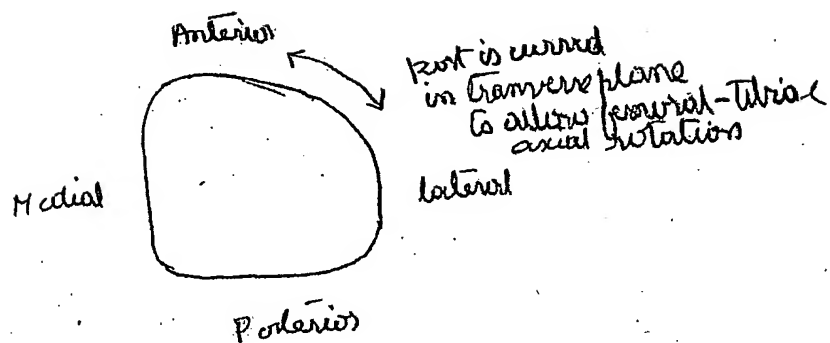 Anterior
post is curved
in transverse plane
to allow femoral-tibial
axial rotation
Medial
lateral
Posterior